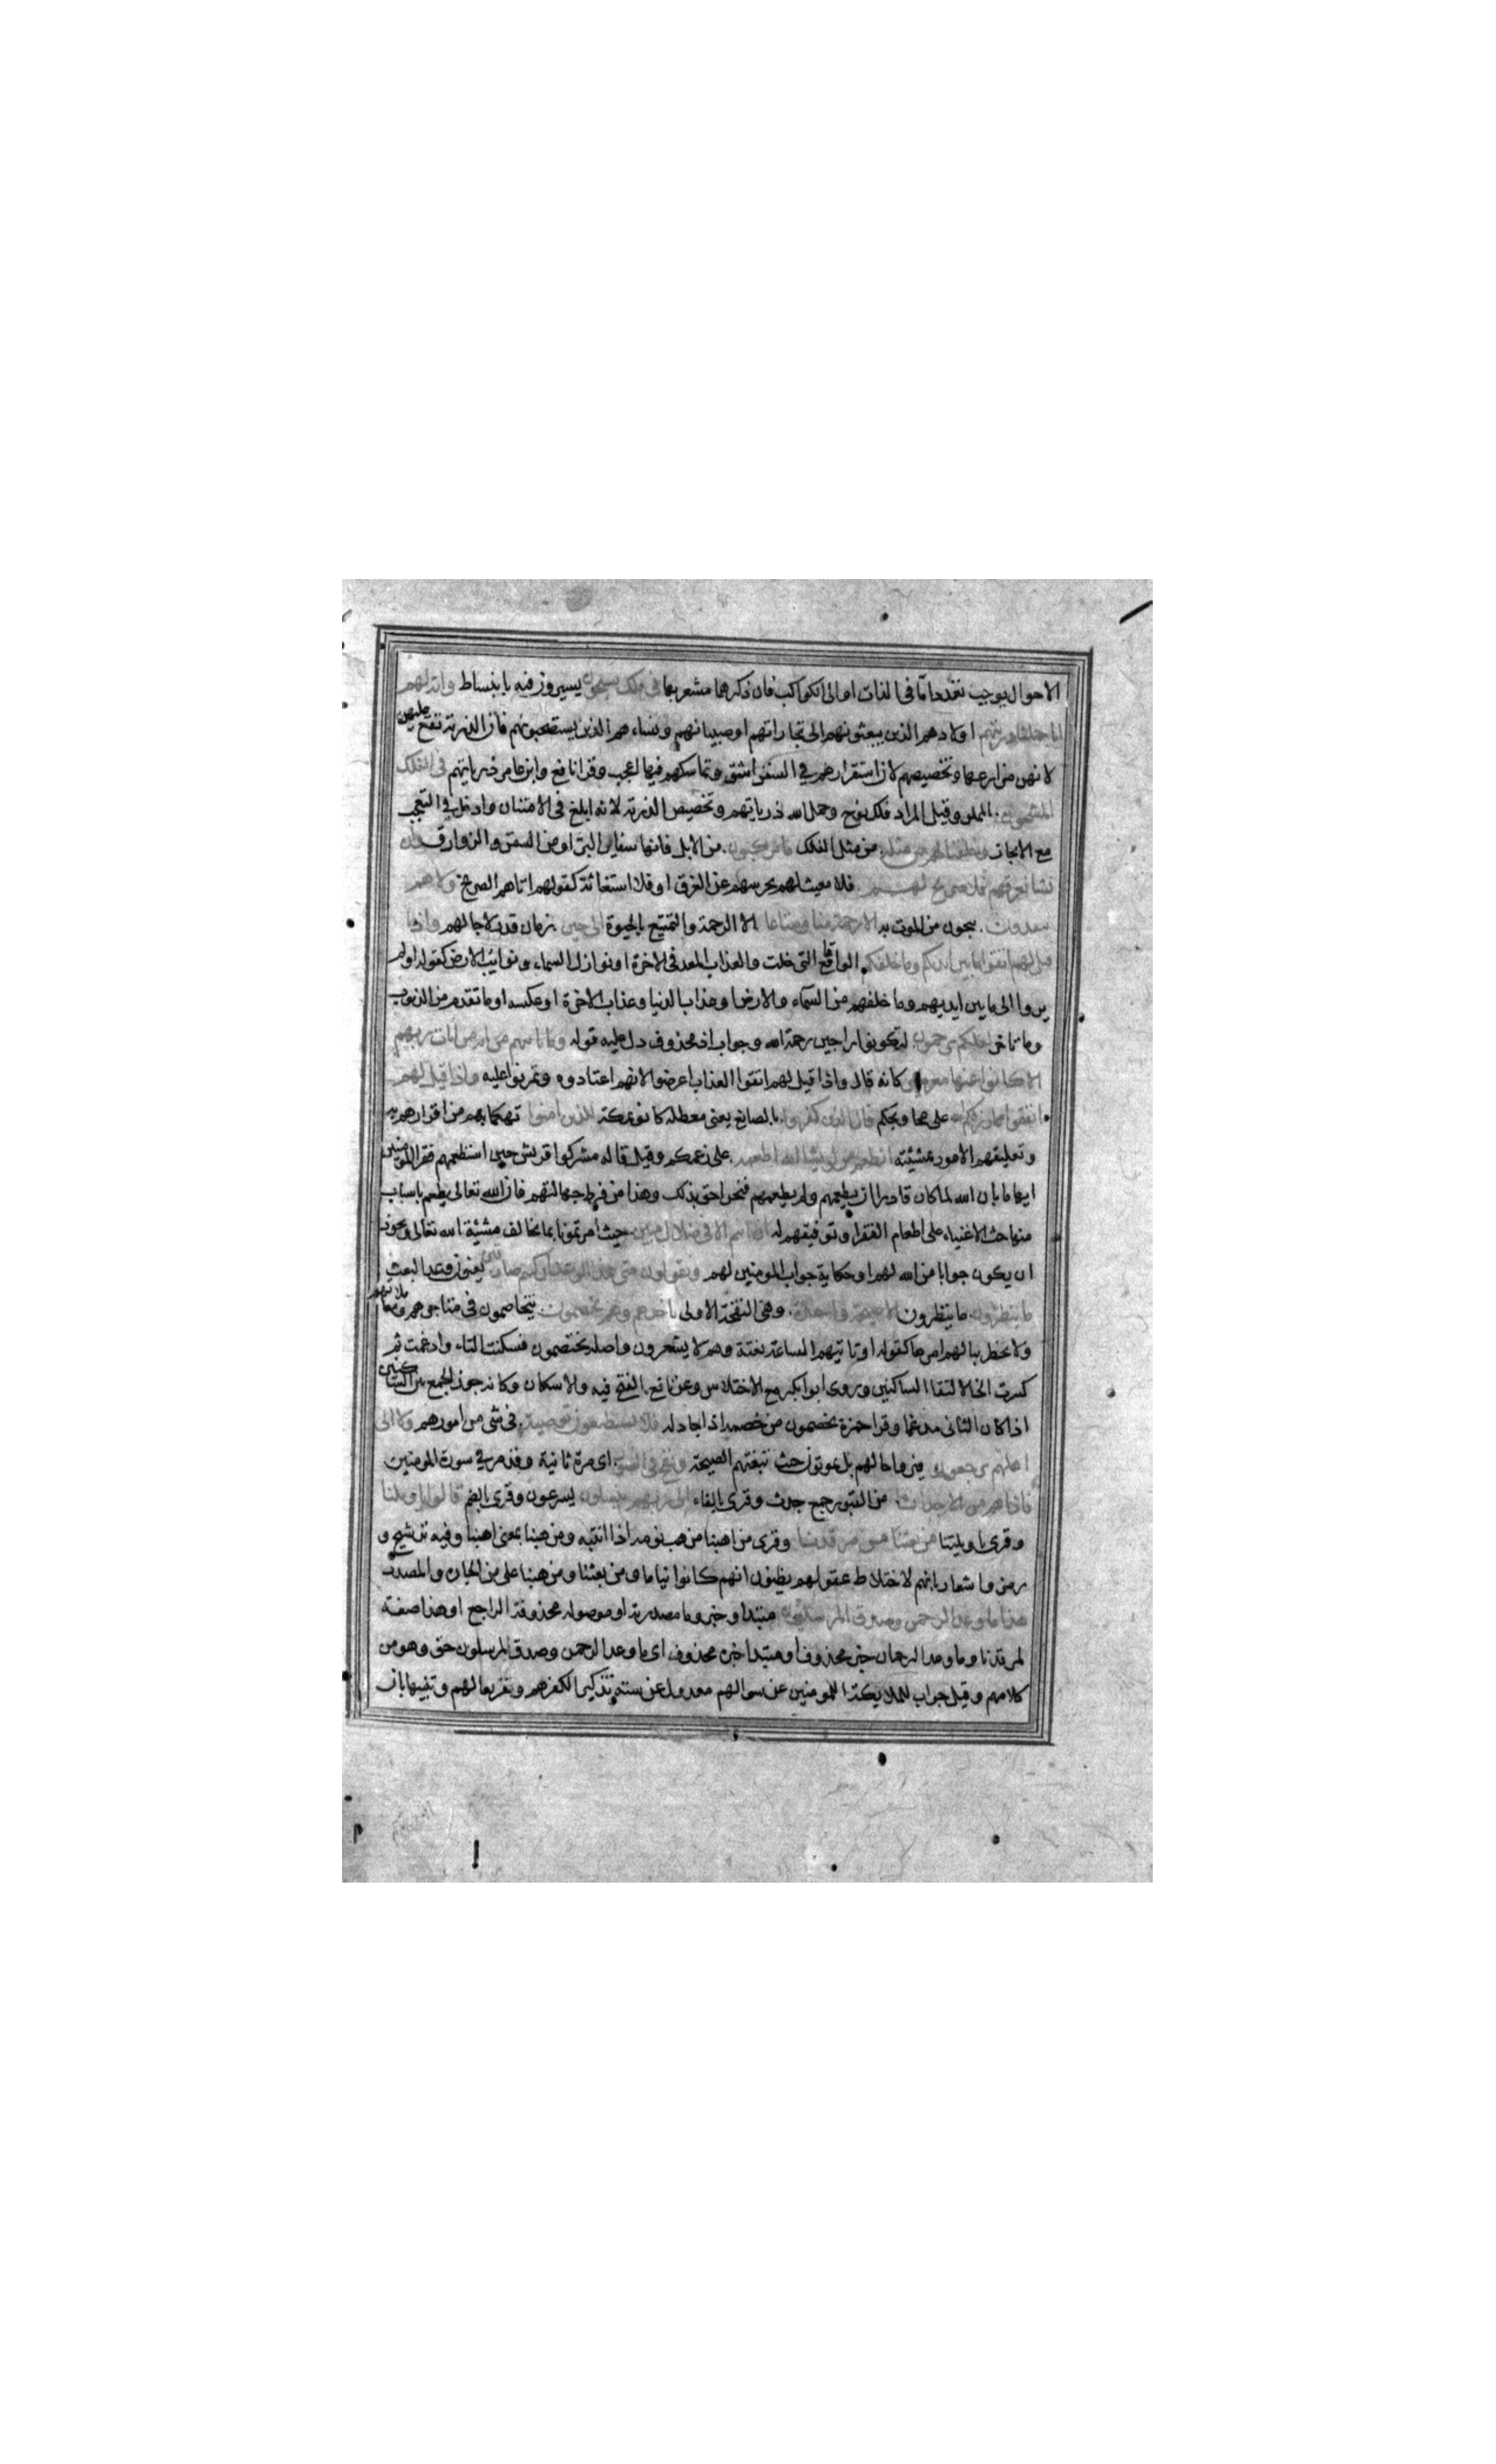 الاحوال يوجب تعددا ما فى الذات او الى الكواكب فان ذكرهما مشعر بها فى فلك يسبحون يسيرون فيه بانبساط واية لهم
انا حملنا ذريتهم اولادهم الذين يبعثونهم الى تجاراتهم او صبيانهم ونساءهم الذين يستصحبونهم فان الذرية تقع عليهن
لانهن مزارعها وتخصيصهم لان استقرارهم فى السفن اشق وتماسكهم فيها اعجب وقرا نافع وابن عامر ذرياتهم فى الفلك
المشحون المملو وقيل المراد فلك نوح وحمل الله ذرياتهم وتخصيص الذرية لانه ابلغ فى الامتنان وادخل فى التعجب
مع الايجاز وخلقنا لهم من مثله من مثل الفلك ما يركبون من الابل فانها سفاين البر او من السفن والزوارق وان
نشا نغرقهم فلا صريخ لهم فلا مغيث لهم يحرسهم عن الغرق او فلا استغاثة كقولهم اتاهم الصريخ ولا هم
ينقذون ينجون من الموت به الا رحمة منا ومتاعا الا لرحمة ولتمتيع بالحيوة الى حين زمان قدر لاجالهم واذا
قيل لهم اتقوا ما بين ايديكم وما خلفكم الوقايع التى خلت والعذاب المعد فى الاخرة او نوازل السماء ونوايب الارض كقوله اولم
يروا الى ما بين ايديهم وما خلفهم من السماء والارض او عذاب الدنيا وعذاب الاخرة او عكسه او ما تقدم من الذنوب
وما تاخر لعلكم ترحمون لتكونوا راجين رحمة الله وجواب اذ محذوف دل عليه قوله وما تاتيهم من اية من ايات ربهم
الا كانوا عنها معرضين كانه قال واذا قيل لهم اتقوا العذاب اعرضوا لانهم اعتادوه وتمرنوا عليه واذا قيل لهم
انفقوا مما رزقكم الله على محاويجكم قال الذين كفروا بالصانع يعنى معطلة كانوا بمكة للذين امنوا تهكما بهم من اقرارهم به
وتعليقهم الامور بمشيته انطعم من لو يشا الله اطعمه على زعمكم وقيل قاله مشركوا قريش حين استطعمهم فقرا المومنين
ايهاما بان الله لما كان قادرا ان يطعمهم ولم يطعمهم فنحن احق بذلك وهذا من فرط جهالتهم فان الله تعالى يطعم باسباب
منها حث الاغنياء على اطعام الفقرا وتوفيقهم له ان انتم الا فى ضلال مبين حيث امرتمونا بما يخالف مشيئة الله تعالى ويجوز
ان يكون جوابا من الله لهم او حكاية جواب المومنين لهم ويقولون متى هذا الوعد ان كنتم صادقين يعنون وعد البعث
ما ينظرون ما ينتظرون الا صيحة واحدة وهى النفخة الاولى تاخذهم وهم يخصمون يتخاصمون فى متاجرهم ومعاملاتهم
ولا يخطر ببالهم امرها كقوله او تاتيهم الساعة بغتة وهم لا يشعرون واصله يختصمون فسكنت التاء وادغمت ثم
كسرت الخا لالتقا الساكنين وروى ابو بكر مع الاختلاس وعن نافع الفتح فيه والاسكان وكانه جوز الجمع بين الساكنين
اذا كان الثانى مدغما وقرا حمزة يخصمون من خصمه اذا جادله فلا يستطيعون توصية فى شى من امورهم ولا الى
اهلهم يرجعون فيروا حالهم بل يموتون حيث تبغتهم الصيحة ونفخ فى الصور اى مرة ثانية وقد مر فى سورة المومنين
فاذا هم من الاجداث من القبور جمع جدث وقرى بالفاء الى ربهم ينسلون يسرعون وقرى بالضم قالوا يا ويلنا
وقرى يا ويلتنا من بعثنا من مرقدنا وقرى من اهبنا من هب نومه اذا انتبه ومن هبنا بمعنى اهبنا وفيه ترشيح و
رمز واشعار بانهم لاختلاط عقولهم يظنون انهم كانوا نياما ومن بعثنا ومن هبنا على من الجارة والمصدر
هذا ما وعد الرحمن وصدق المرسلون مبتدا وخبر وما مصدرية او موصولة محذوفة الراجع او هذا صفة
لمرقدنا وما وعد الرحمان خبر محذوف او مبتدا خبره محذوف اى ما وعد الرحمن وصدق المرسلون حق وهو من
كلامهم وقيل جواب للملايكة او للمومنين عن سوالهم معدول عن سننه تذكيرا لكفرهم وتقريعا لهم وتنبيها بان